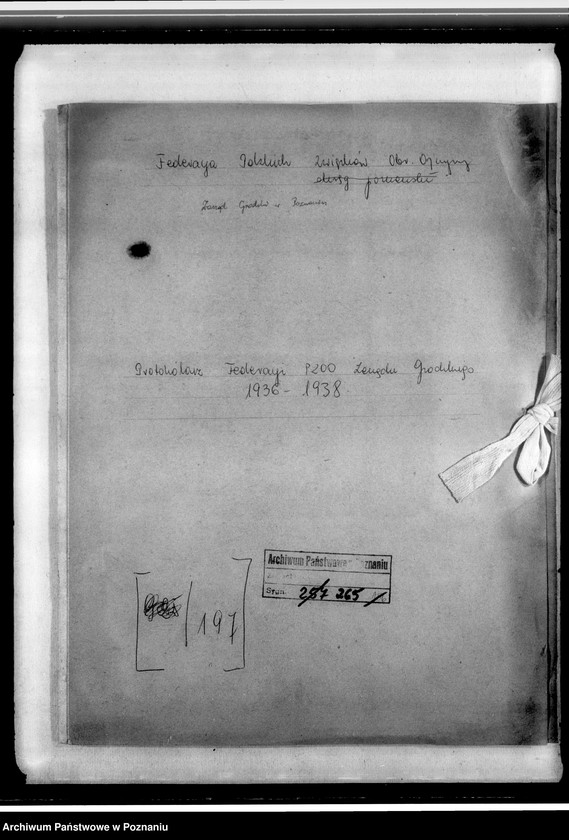 Federacja Polskich Związków Obr. Ojczyzny
okręg poznański
Zarząd Grodzki w Poznaniu
Protokolarz Federacji PZOO Zarządu Grodzkiego
1936 - 1938
Archiwum Państwowe w Poznaniu
Sygn. 257 265
/ 197
Archiwum Państwowe w Poznaniu